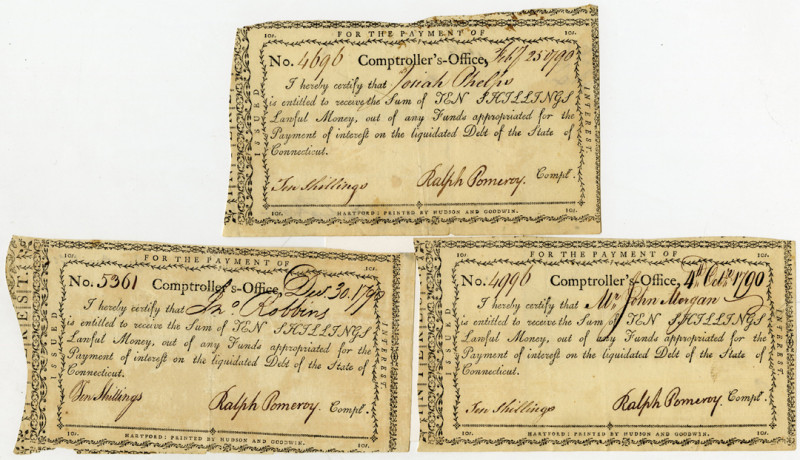 10s. FOR THE PAYMENT OF 10s.
No. 4696 Comptroller's-Office, Feby 25 1790
I hereby certify that Josiah Phelps
is entitled to receive the Sum of TEN SHILLINGS
Lawful Money, out of any Funds appropriated for the
Payment of interest on the liquidated Debt of the State of
Connecticut.
Ten Shillings Ralph Pomeroy. Compl.
10s. HARTFORD: PRINTED BY HUDSON AND GOODWIN. 10s.
ISSUED
INTEREST.
10s. FOR THE PAYMENT OF
No. 5361 Comptroller's-Office, Decr. 30. 1790
I hereby certify that Jno. Robbins
is entitled to receive the Sum of TEN SHILLINGS
Lawful Money, out of any Funds appropriated for the
Payment of interest on the liquidated Debt of the State of
Connecticut.
Ten Shillings Ralph Pomeroy. Compl.
10s. HARTFORD: PRINTED BY HUDSON AND GOODWIN. 10s.
ISSUED
INTEREST.
10s. FOR THE PAYMENT OF 10s.
No. 4996 Comptroller's-Office, 4th Octr. 1790
I hereby certify that Mr. John Morgan
is entitled to receive the Sum of TEN SHILLINGS
Lawful Money, out of any Funds appropriated for the
Payment of interest on the liquidated Debt of the State of
Connecticut.
Ten Shillings Ralph Pomeroy. Compl.
10s. HARTFORD: PRINTED BY HUDSON AND GOODWIN. 10s.
ISSUED
INTEREST.